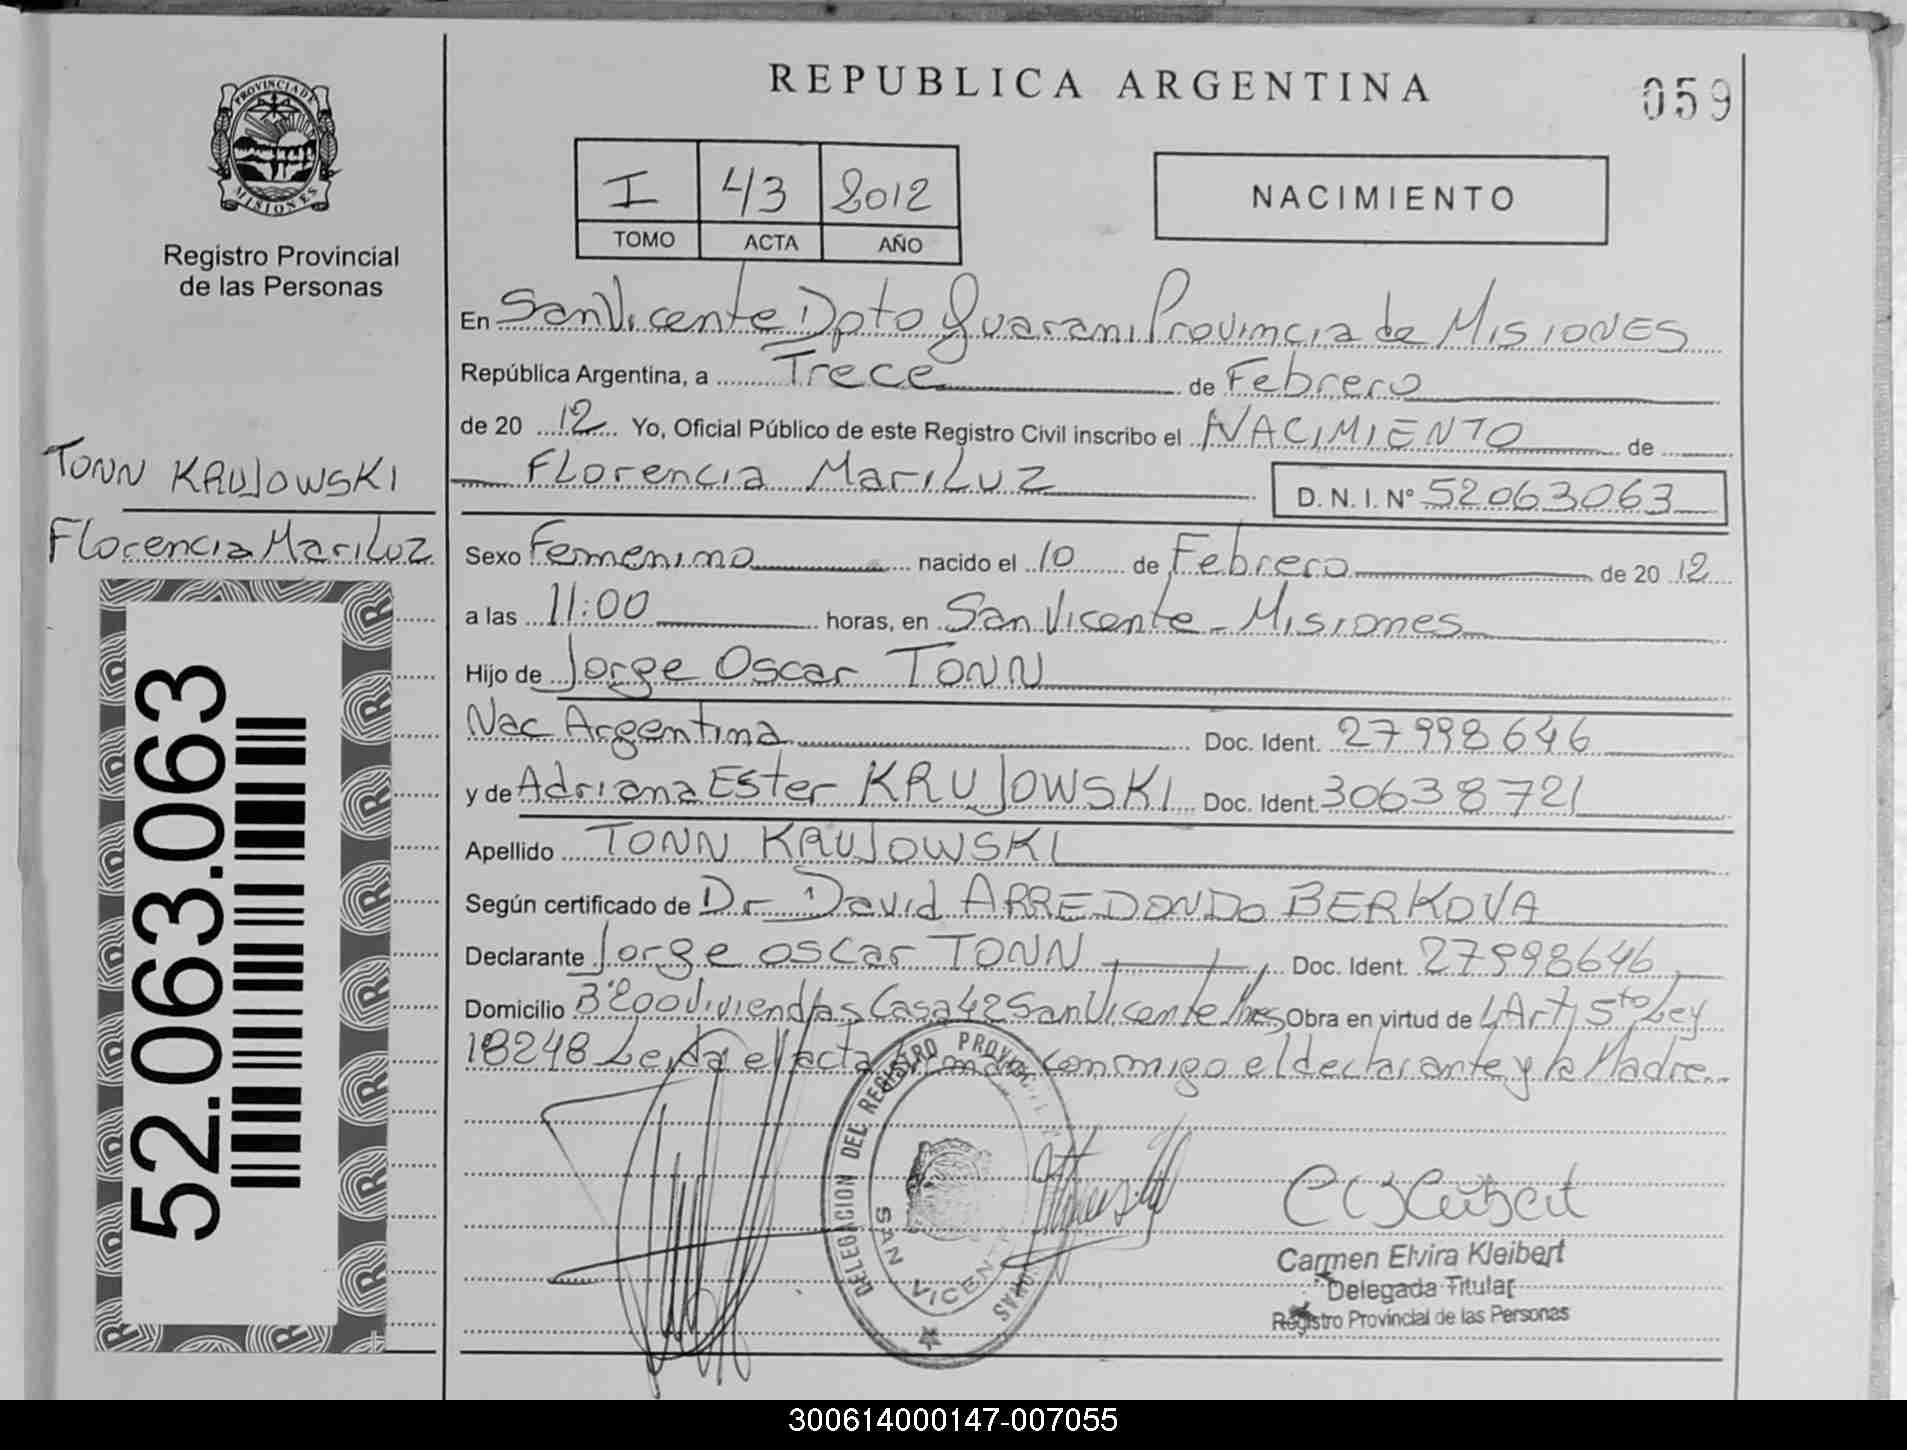 REPUBLICA ARGENTINA
059
PROVINCIA DE
MISIONES
Registro Provincial
de las Personas
I 43 2012
TOMO ACTA AÑO
NACIMIENTO
En San Vicente Dpto Guarani Provincia de MISIONES
República Argentina, a Trece de Febrero
de 20 12 Yo, Oficial Público de este Registro Civil inscribo el NACIMIENTO de
Florencia Mariluz D. N. I. Nº 52063063
TONN KRUJOWSKI
Florencia Mariluz
52.063.063
Sexo Femenino nacido el 10 de Febrero de 20 12
a las 11:00 horas, en San Vicente - Misiones
Hijo de Jorge Oscar TONN
Nac Argentina Doc. Ident. 27998646
y de Adriana Ester KRUJOWSKI Doc. Ident. 30638721
Apellido TONN KRUJOWSKI
Según certificado de Dr David ARREDONDO BERKOVA
Declarante Jorge Oscar TONN Doc. Ident. 27998646
Domicilio Bº 200 Viviendas Casa 42 San Vicente Mnes Obra en virtud de L Art 5to Ley
18248 Leida el acta conmigo el declarante y la Madre
DELEGACION DEL REGISTRO PROVINCIAL
SAN VICENTE
Carmen Elvira Kleibert
Delegada Titular
Registro Provincial de las Personas
300614000147-007055